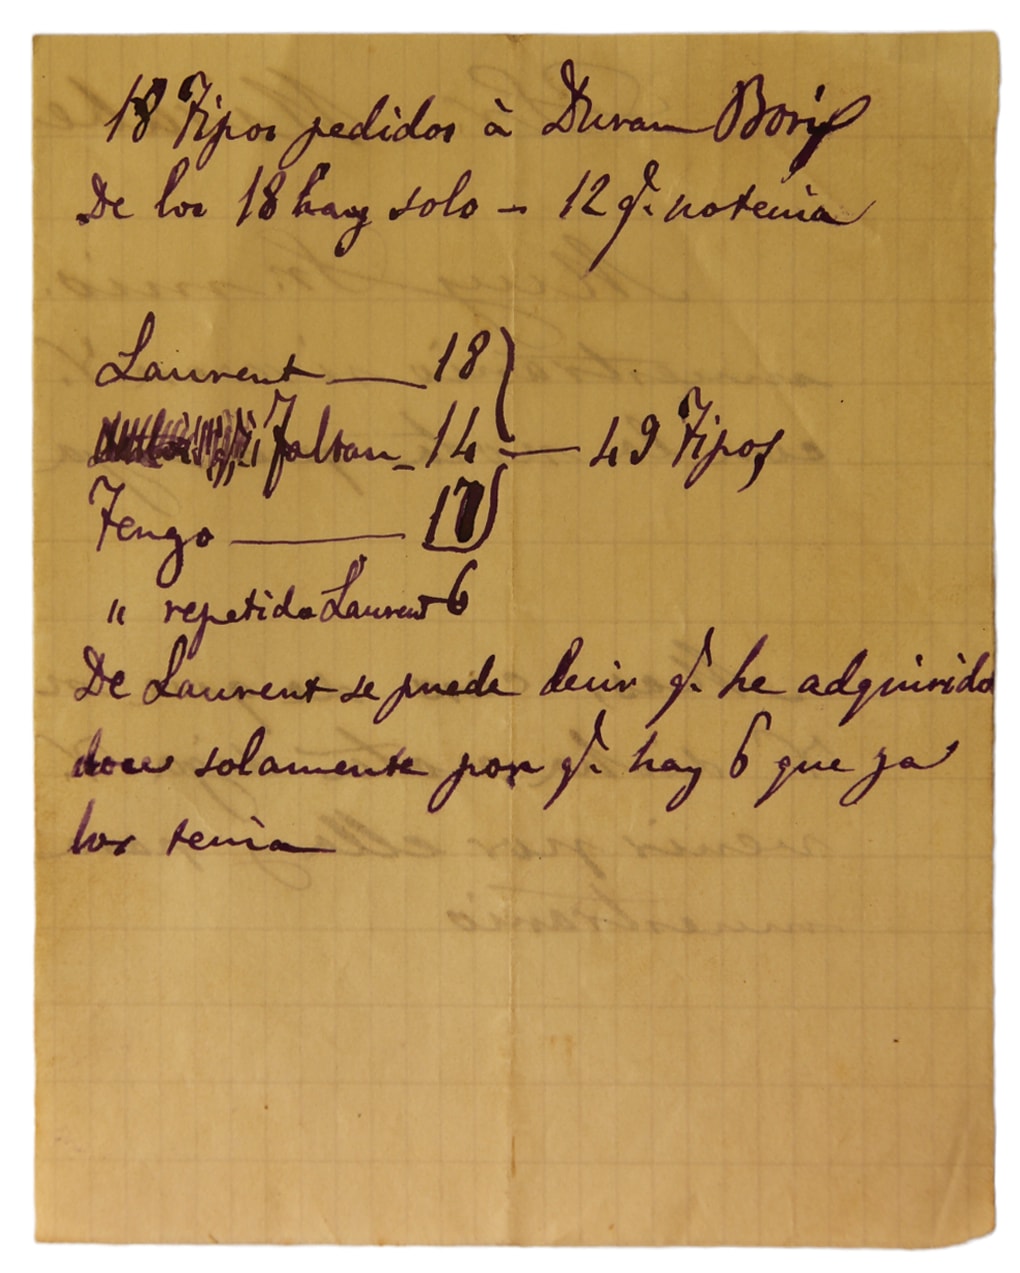 18 Tipos pedidos à Duran Borys
De los 18 hay solo - 12 q. no tenia
Laurent — 18
Faltan - 14 — 49 Tipos
Tengo — 17
" repetido Laurent 6
De Laurent se puede decir q. he adquirido
doce solamente por q. hay 6 que ya
los tenia